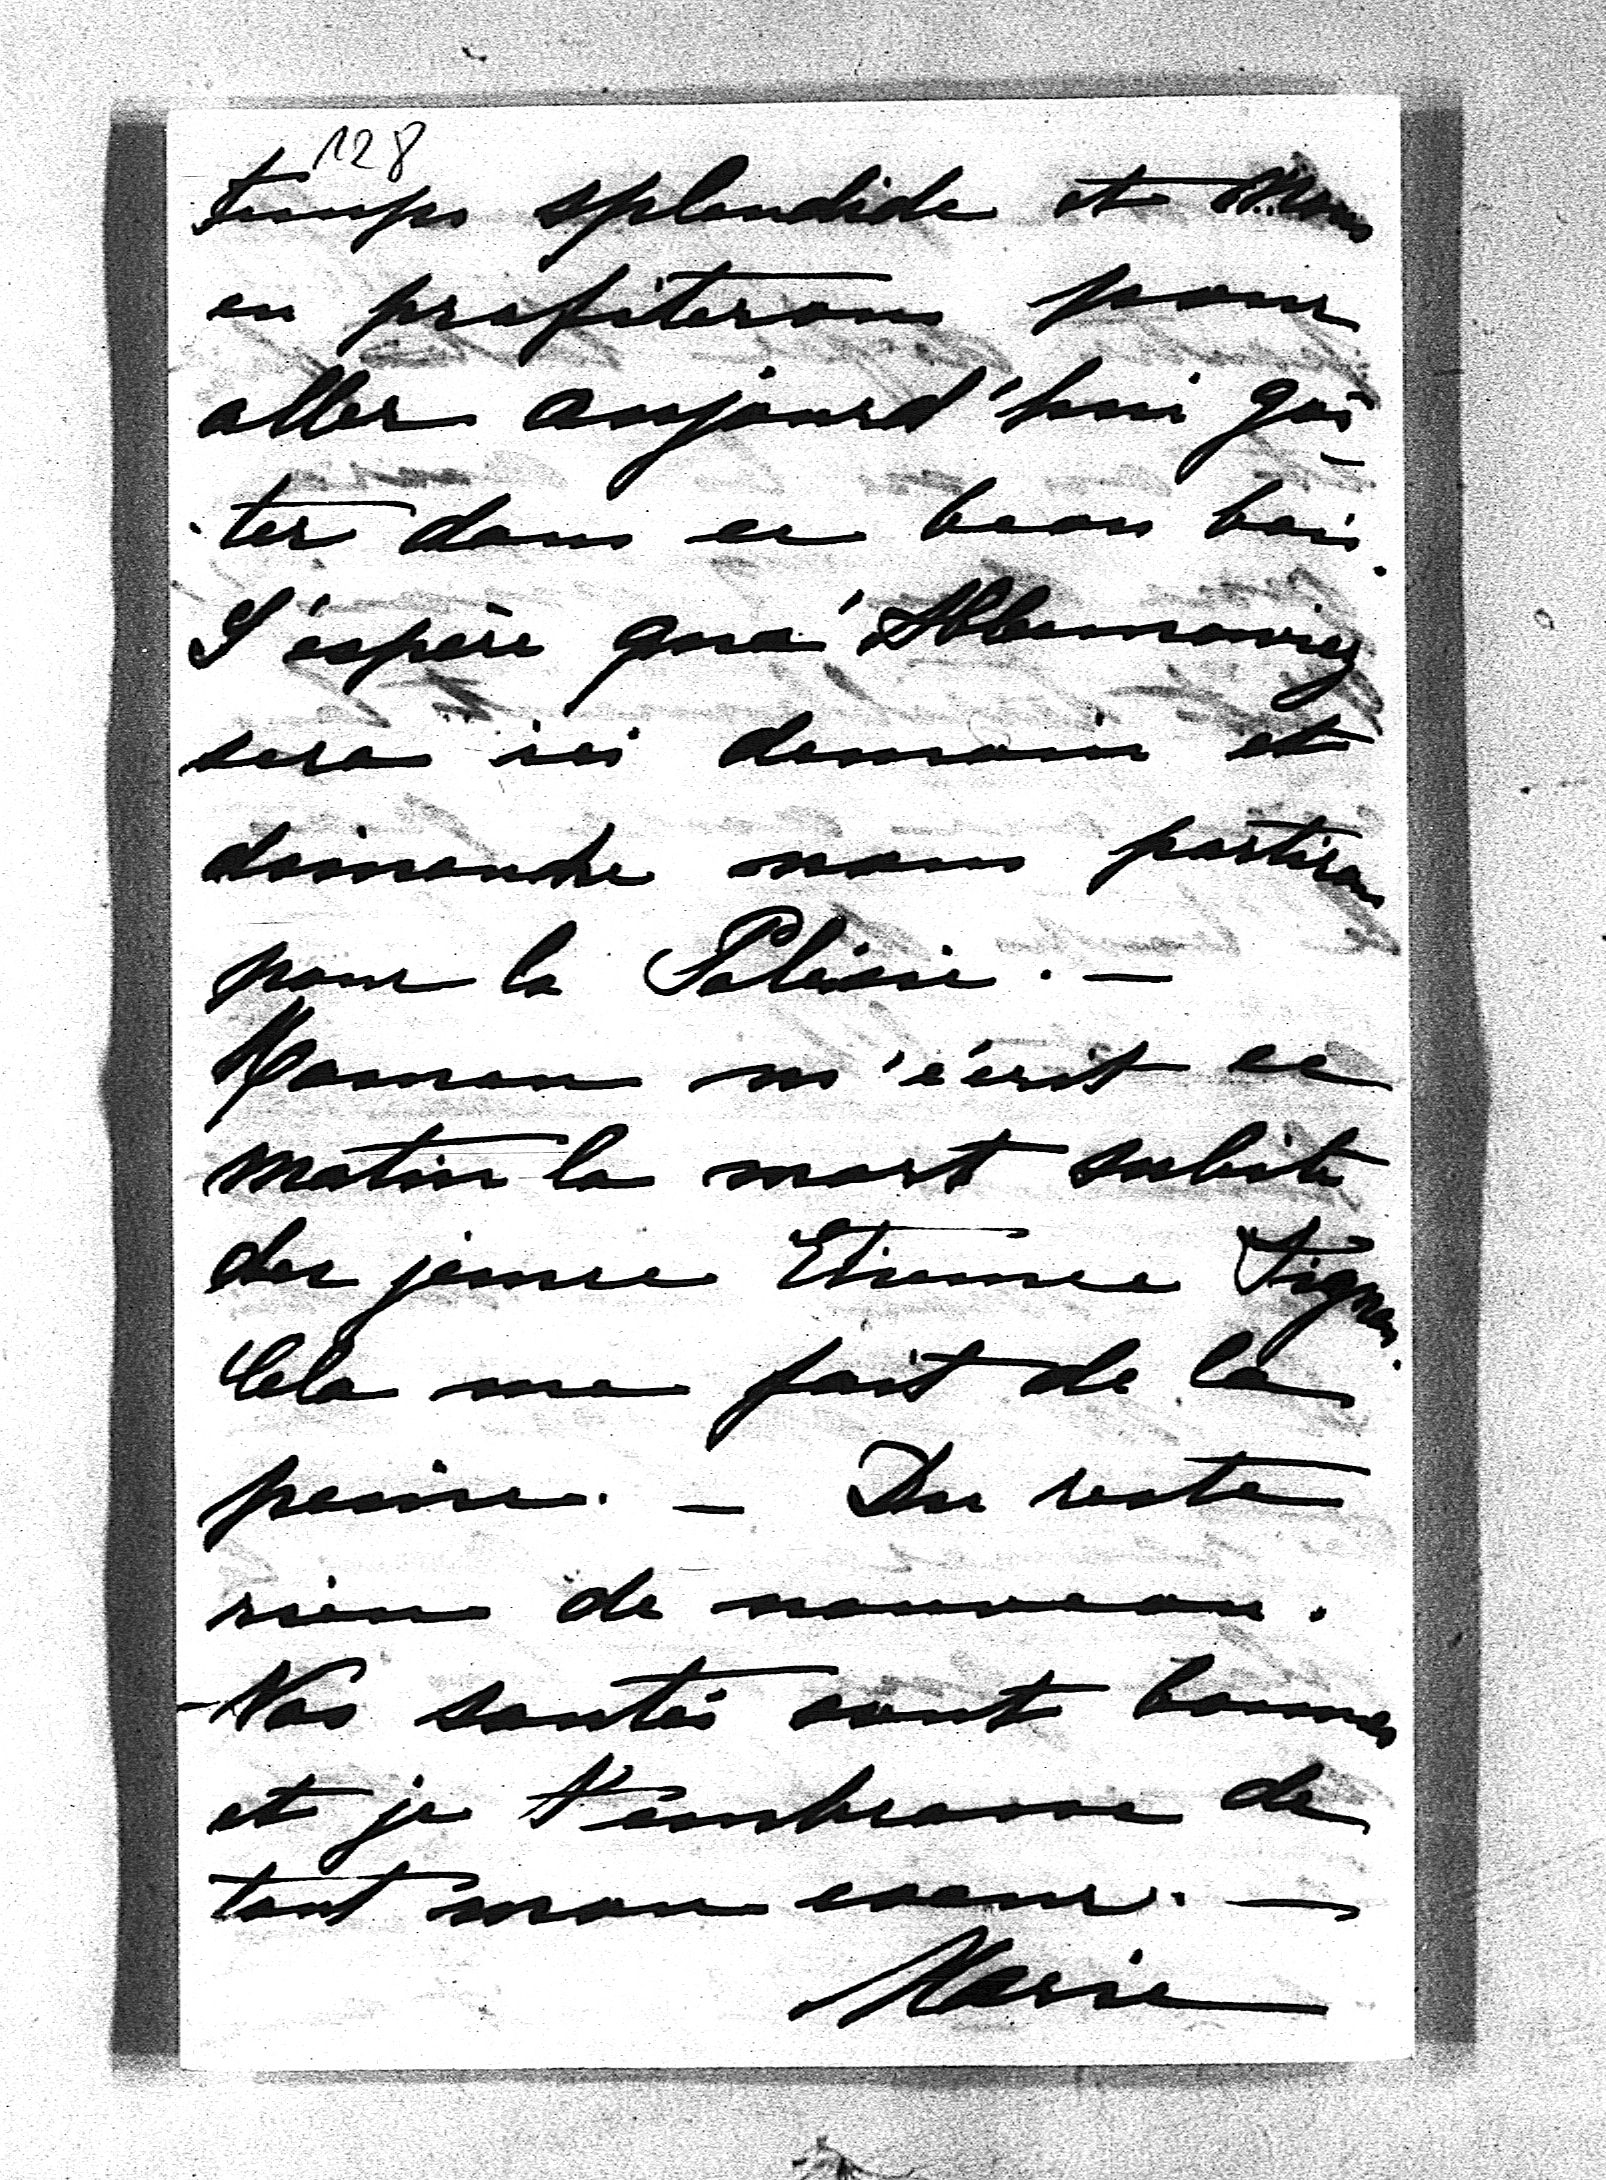 128
temps splendide et nous
en profiterons pour
aller aujourd'hui goû-
ter dans ce beau bois.
J'espère que
sera ici demain et
dimanche nous partirons
pour la Polésie. —
Maman m'écrit ce
matin la mort subite
du jeune Etienne
Cela me fait de la
peine. — Du reste
rien de nouveau.
Nos santés sont bonnes
et je t'embrasse de
tout mon coeur. —
Marie